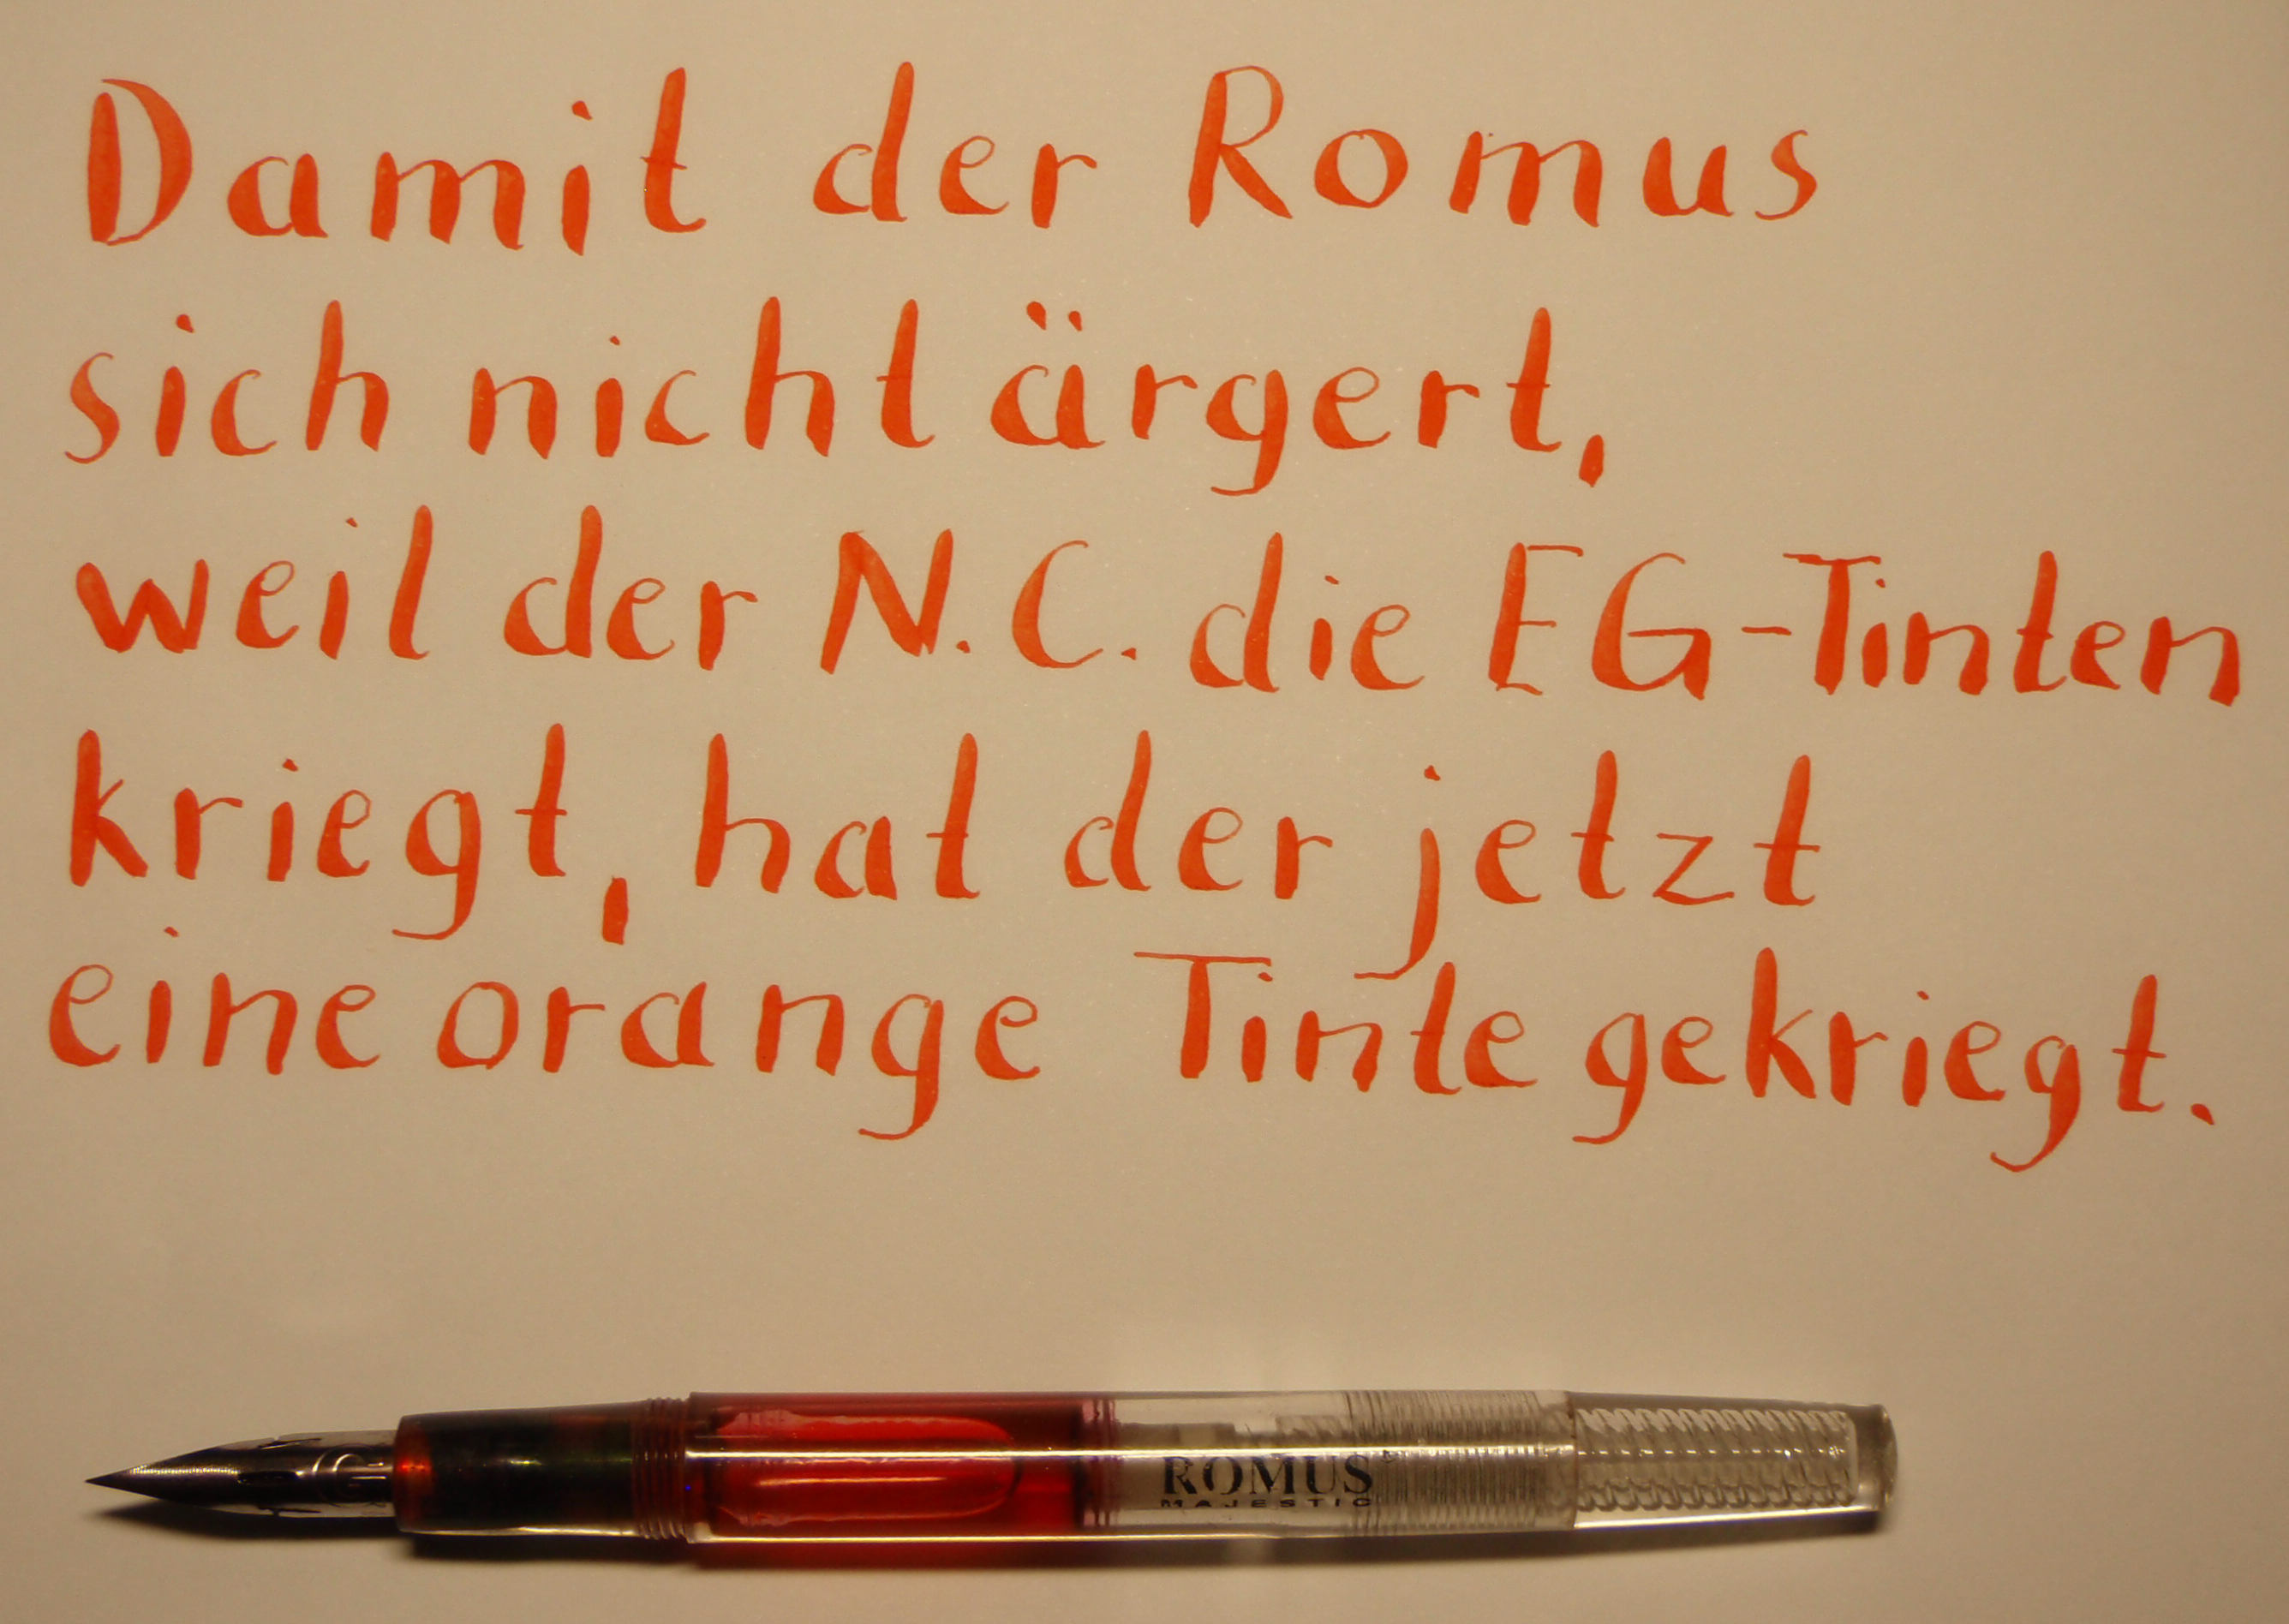 Damit der Romus
sich nicht ärgert,
weil der N.C. die EG-Tinten
kriegt, hat der jetzt
eine orange Tinte gekriegt.
ROMUS
MAJESTIC